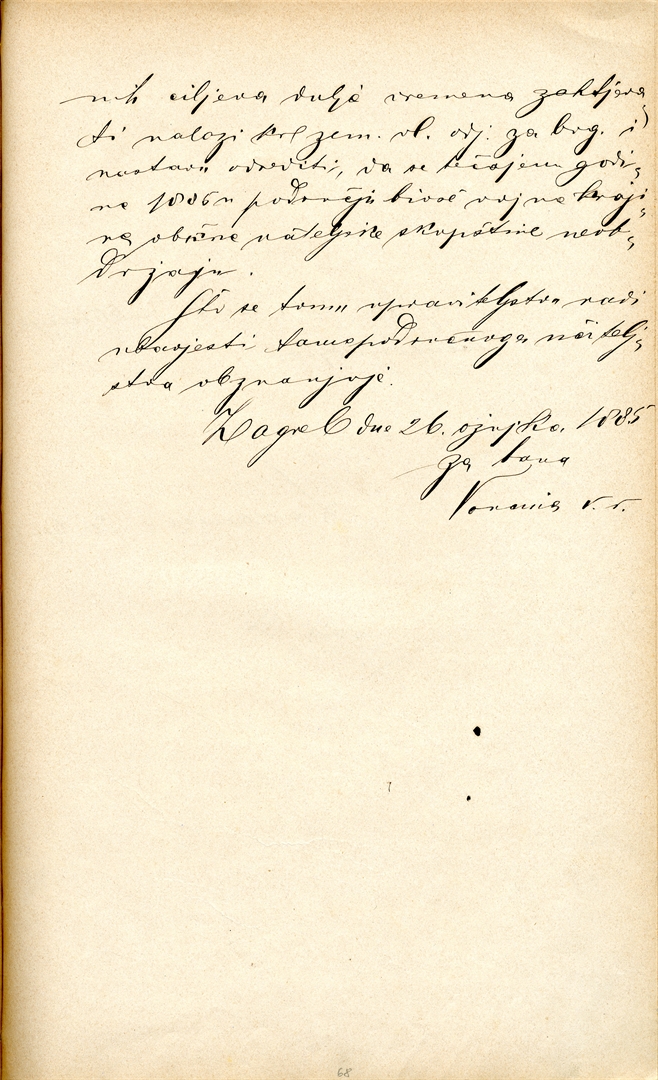 nih ciljeva dulje vremena zahtjeva
ti nalazi kr. zem. vl. odj. za bog. i
nastavu odrediti, da se tečajem godi„
ne 1885 u području bivše vojne kraji„
ne obične učiteljske skupštine neob„
državaju.
Što se tomu upraviteljstvu radi
obavjesti tamopodručnoga učitelj„
stva obznanjuje.
Zagreb dne 26. ožujka. 1885
za bana
v. r.
68